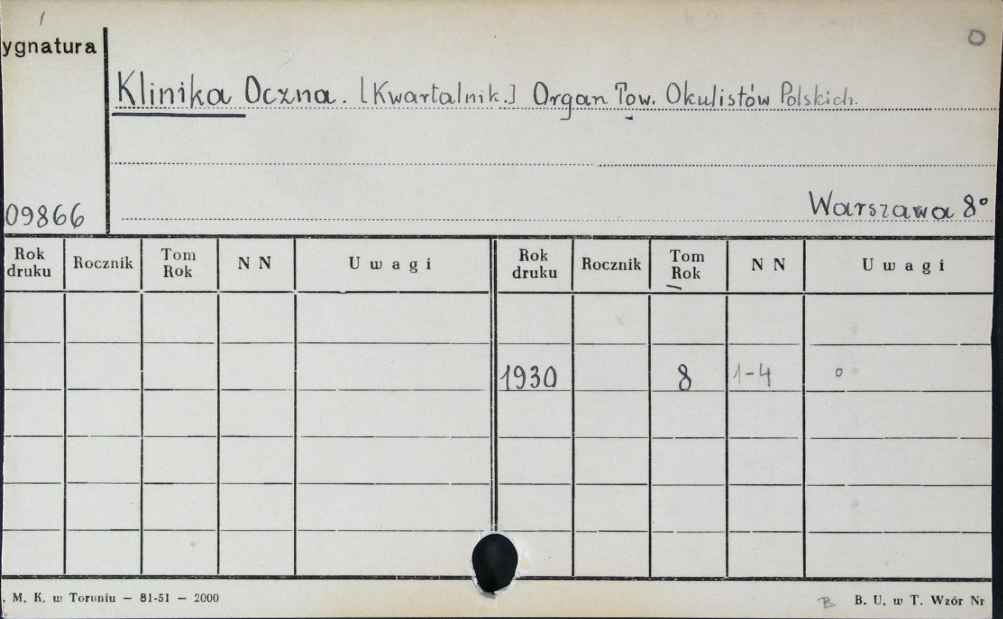 ygnatura
O
Klinika Oczna. [Kwartalnik.] Organ Tow. Okulistów Polskich.
09866
Warszawa 8°
Rok druku Rocznik Tom Rok N N U w a g i Rok druku Rocznik Tom Rok N N U w a g i
1930 8 1-4 o
. M. K. w Toruniu — 81-51 — 2000
B B. U. w T. Wzór Nr